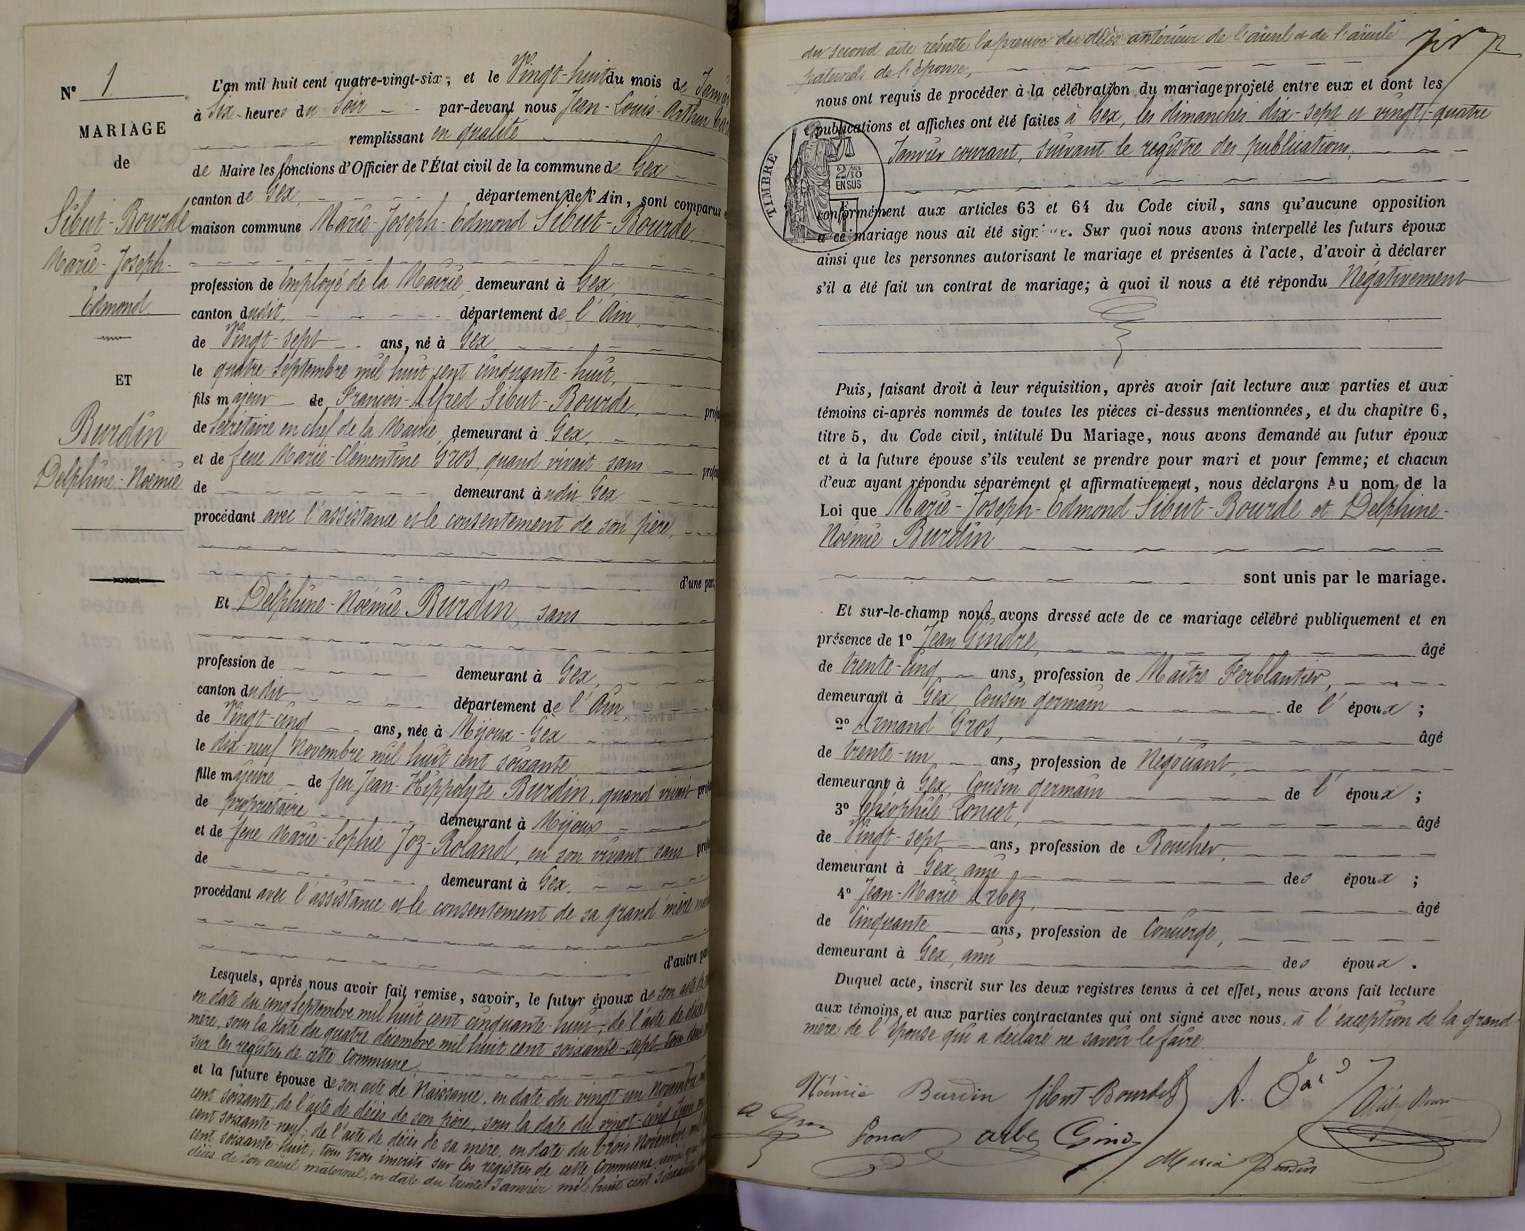 N° 1
MARIAGE
de
Sibut-Bourde
Marie-Joseph-
Edmond
ET
Burdin
Delphine-Noémie
L'an mil huit cent quatre-vingt-six, et le Vingt-huit du mois de
à six heures du Soir par-devant nous Jean-Louis-Arthur
remplissant en qualité
de Maire les fonctions d'Officier de l'État civil de la commune de Gex
canton de Gex, département de l'Ain, sont comparus
maison commune Marie-Joseph-Edmond Sibut-Bourde,
profession de Employé de la Mairie, demeurant à Gex,
canton dudit, département de l'Ain,
de Vingt-sept ans, né à Gex,
le quatre Septembre mil huit cent cinquante-huit,
fils majeur de François-Alfred Sibut-Bourde,
de Secrétaire en chef de la Mairie, demeurant à Gex,
et de feue Marie-Clémentine Gros, quand vivait sans
de demeurant à udit Gex
procédant avec l'assistance et le consentement de son père,
d'une part,
Et Delphine-Noémie Burdin, sans
profession de demeurant à Gex,
canton dudit département de l'Ain,
de Vingt-cinq ans, née à Mijoux-Gex
le dix-neuf Novembre mil huit cent soixante
fille majeure de feu Jean-Hippolyte Burdin, quand vivait
de propriétaire demeurant à Mijoux
et de feue Marie-Sophie Joz-Roland, en son vivant sans
de demeurant à Gex,
procédant avec l'assistance et le consentement de sa grand'mère
d'autre
Lesquels, après nous avoir fait remise, savoir, le futur époux de son acte
en date du cinq Septembre mil huit cent cinquante-huit; de l'acte de
mère, sous la date du quatre décembre mil huit cent soixante-sept,
sur les registres de cette Commune,
et la future épouse de son acte de Naissance, en date du vingt un Novembre
cent soixante, de l'acte de décès de son père, sous la date du vingt-cinq
cent soixante-neuf; de l'acte de décès de sa mère, en date du trois Novembre
cent soixante-huit, tous trois inscrits sur les registres de cette Commune,
décès de son aïeul maternel, en date du trente Janvier mil huit cent
du second acte résulte la preuve du décès antérieur de l'aïeul et de l'aïeule
paternels de l'épouse,
nous ont requis de procéder à la célébration du mariage projeté entre eux et dont les
publications et affiches ont été faites à Gex, les dimanches dix-sept et vingt-quatre
Janvier courant, suivant le registre des publications,
TIMBRE
2/10
EN SUS
conformément aux articles 63 et 64 du Code civil, sans qu'aucune opposition
à ce mariage nous ait été signifiée. Sur quoi nous avons interpellé les futurs époux
ainsi que les personnes autorisant le mariage et présentes à l'acte, d'avoir à déclarer
s'il a été fait un contrat de mariage; à quoi il nous a été répondu Négativement
Puis, faisant droit à leur réquisition, après avoir fait lecture aux parties et aux
témoins ci-après nommés de toutes les pièces ci-dessus mentionnées, et du chapitre 6,
titre 5, du Code civil, intitulé Du Mariage, nous avons demandé au futur époux
et à la future épouse s'ils veulent se prendre pour mari et pour femme; et chacun
d'eux ayant répondu séparément et affirmativement, nous déclarons Au nom de la
Loi que Marie-Joseph-Edmond Sibut-Bourde et Delphine-
Noémie Burdin
sont unis par le mariage.
Et sur-le-champ nous avons dressé acte de ce mariage célébré publiquement et en
présence de 1° Jean Gindre, âgé
de trente-cinq ans, profession de Maître Ferblantier,
demeurant à Gex, Cousin germain de l'époux;
2° Armand Gros, âgé
de trente-un ans, profession de Négociant,
demeurant à Gex, Cousin germain de l'époux;
3° Théophile Poncet, âgé
de Vingt-sept ans, profession de Boucher,
demeurant à Gex, ami des époux;
4° Jean-Marie Arbez, âgé
de Cinquante ans, profession de Concierge,
demeurant à Gex, ami des époux.
Duquel acte, inscrit sur les deux registres tenus à cet effet, nous avons fait lecture
aux témoins et aux parties contractantes qui ont signé avec nous. à l'exception de la grand-
mère de l'épouse qui a déclaré ne savoir le faire
Noémie Burdin Sibut-Bourde
A Gros Poncet Arbez Gindre
Maria Burdin